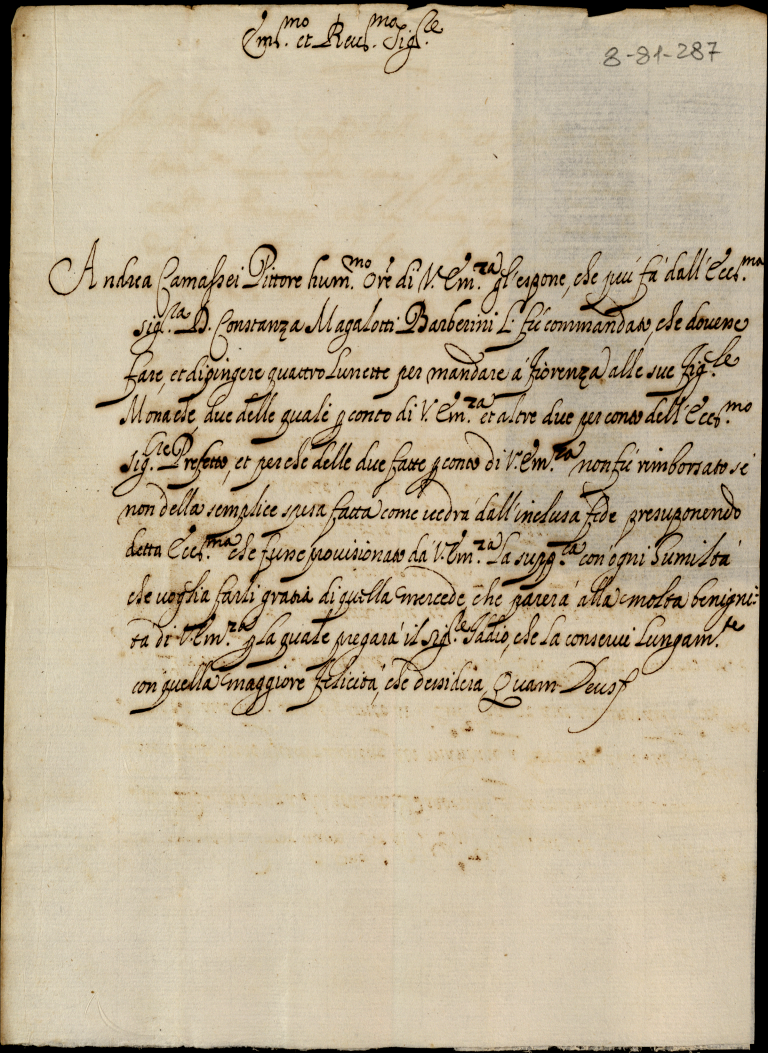 Em.mo et Reu.mo Sig.re
8-81-287
Andrea Camassei Pittore hum.mo Ore di V. Em.za gl'espone, che piu fà dall'Ecc.ma
Sig.ra D. Constanza Magalotti Barberini L. fù commandato, che douesse
fare, et dipingere quattro Lunette per mandare à Fiorenza alle sue Fig.le
Monache, due delle quale p conto di V. Em.za et altre due per conto dell'Ecc.mo
Sig.re Prefetto, et perche delle due fatte p conto di V. Em.za non fù rimborsato se
non della semplice spesa fatta come vedrà dall'inclusa fede presuponendo
detta Ecc.ma che fusse provisionato da V. Em.za La supp.ca con ogni humiltà
che voglia farli gratia di quella mercede, che parerà alla molta benigni-
tà di V. Em.za p La quale pregarà il Sig.re Iddio, che La conserui Lungam.te
con quella maggiore felicità, che dessidera, Quam Deus